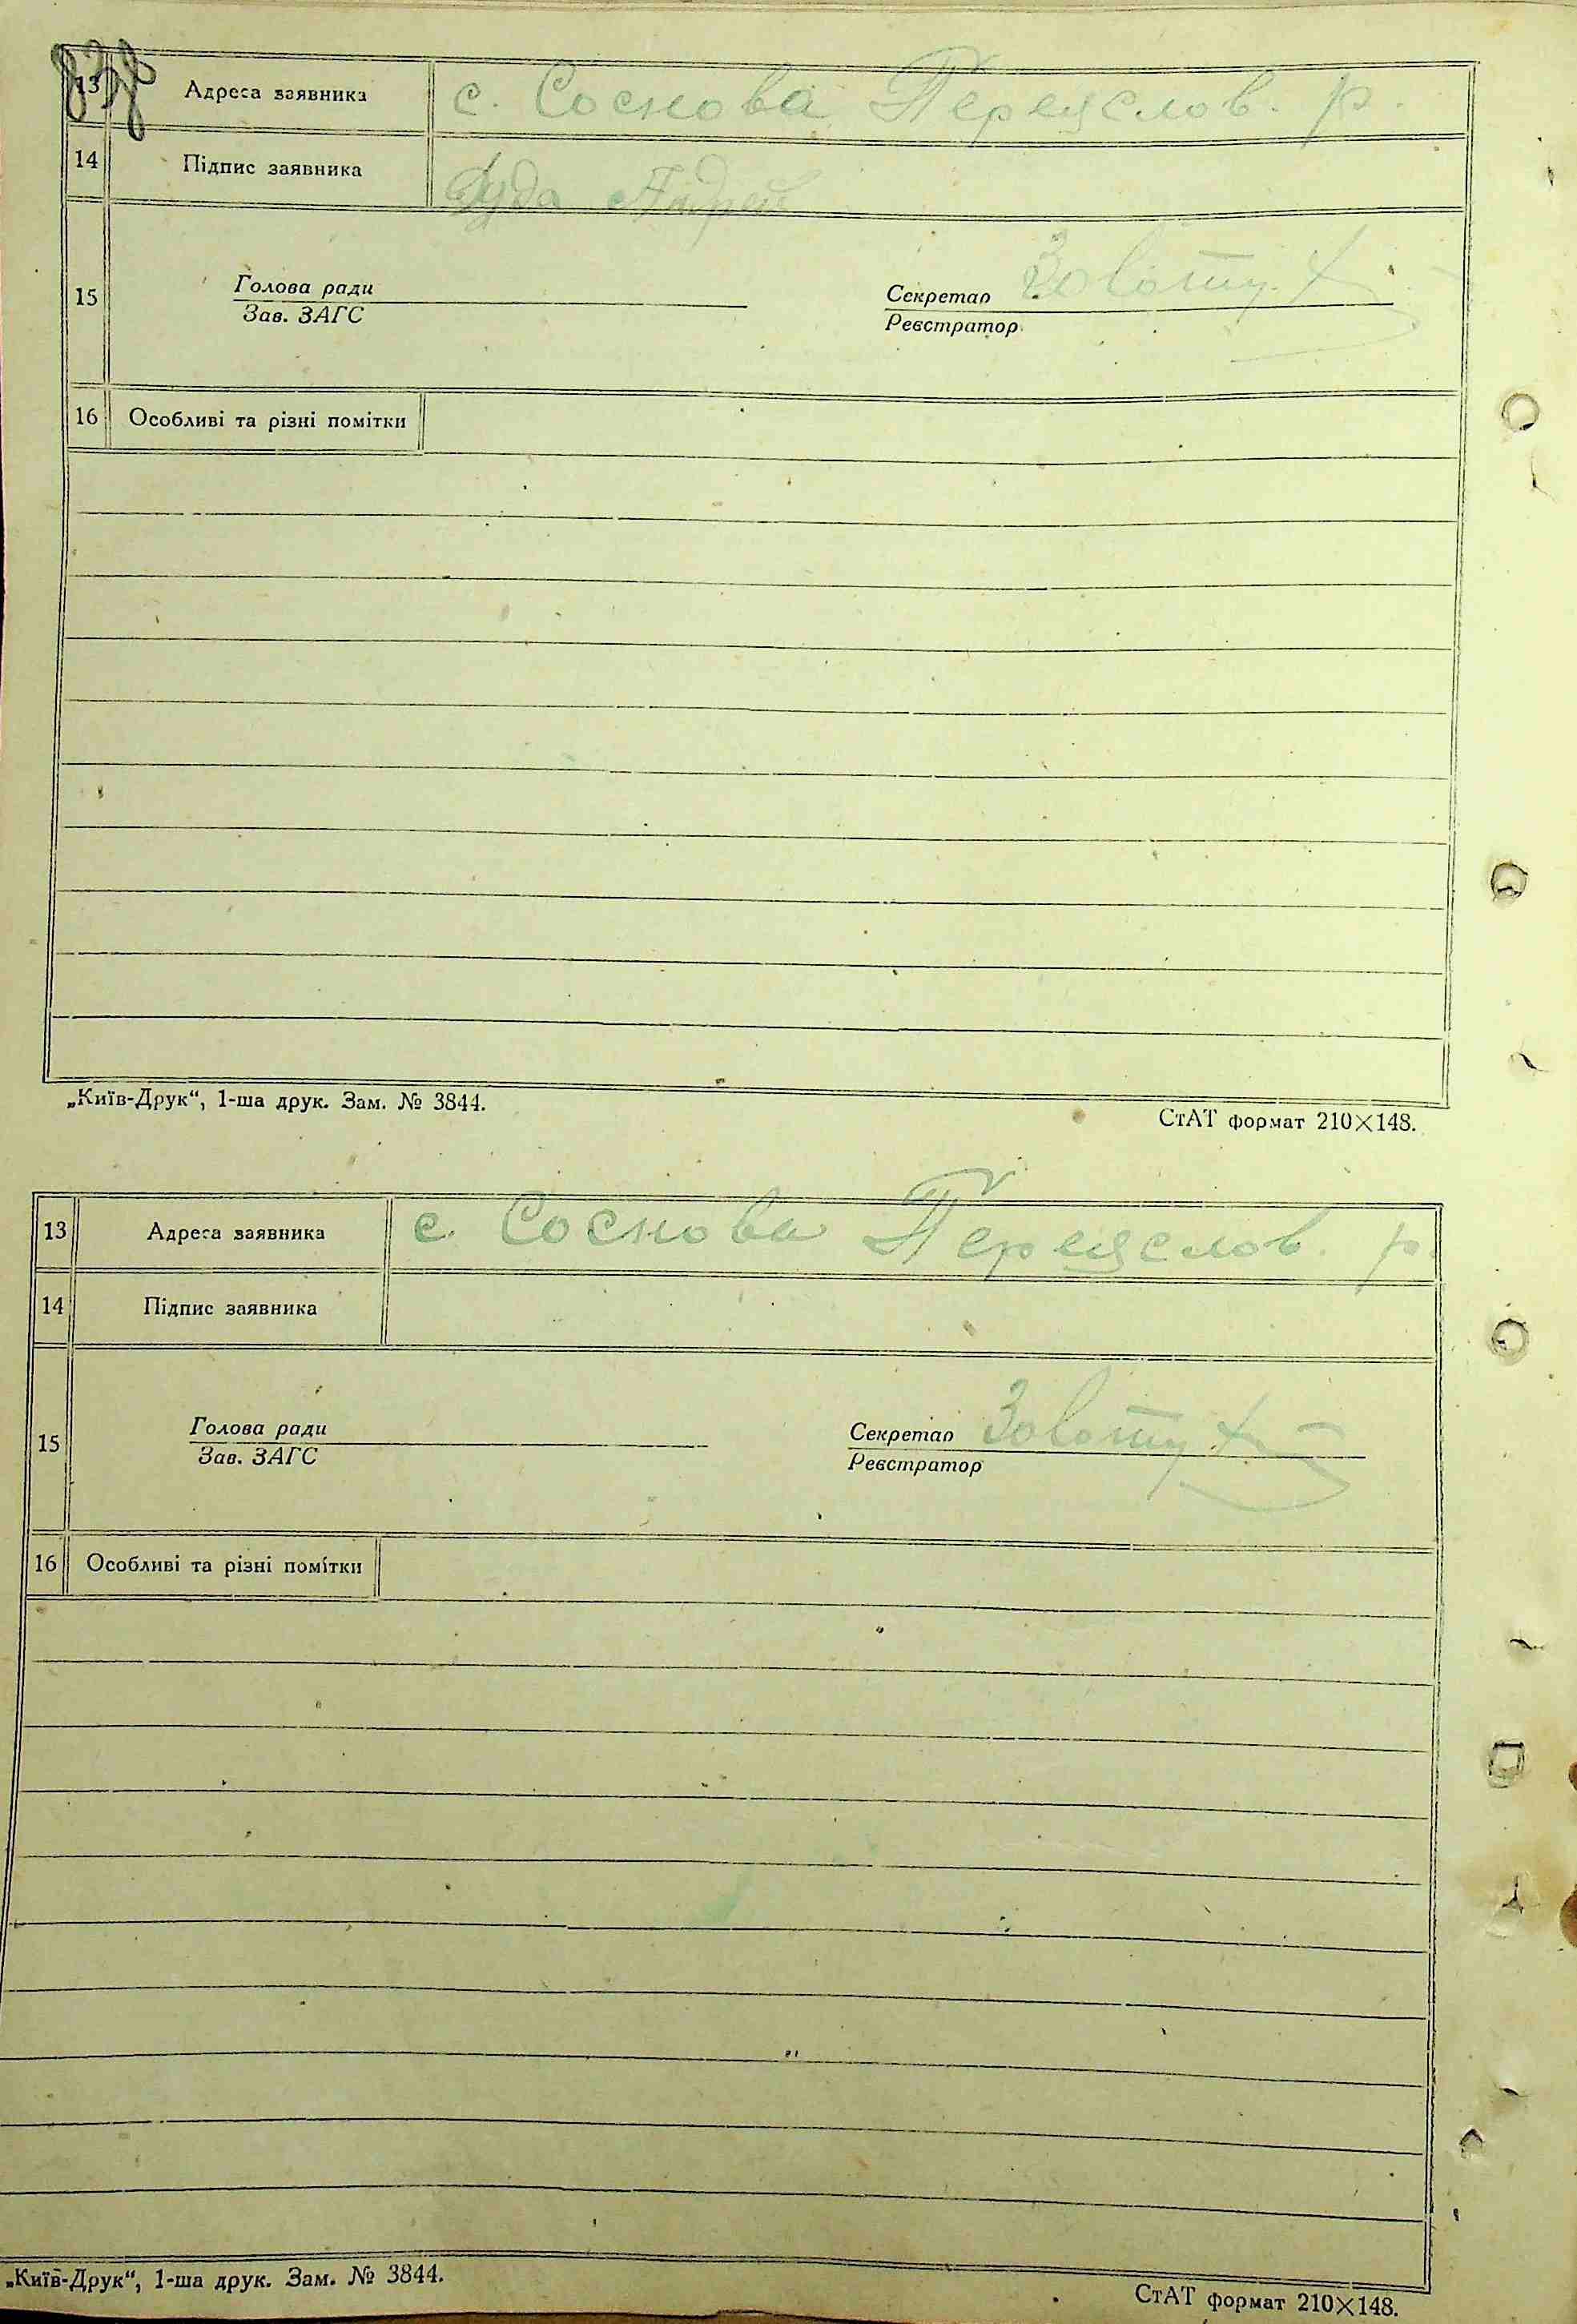 13 Адреса заявника с. Соснова Переяслов. р.
14 Підпис заявника Дуда Андрей
15 Голова ради Секретар
Зав. ЗАГС Реєстратор
16 Особливі та різні помітки
„Київ-Друк“, 1-ша друк. Зам. № 3844.
СтАТ формат 210×148.
13 Адреса заявника с. Соснова Переяслов. р.
14 Підпис заявника
15 Голова ради Секретар
Зав. ЗАГС Реєстратор
16 Особливі та різні помітки
„Київ-Друк“, 1-ша друк. Зам. № 3844.
СтАТ формат 210×148.